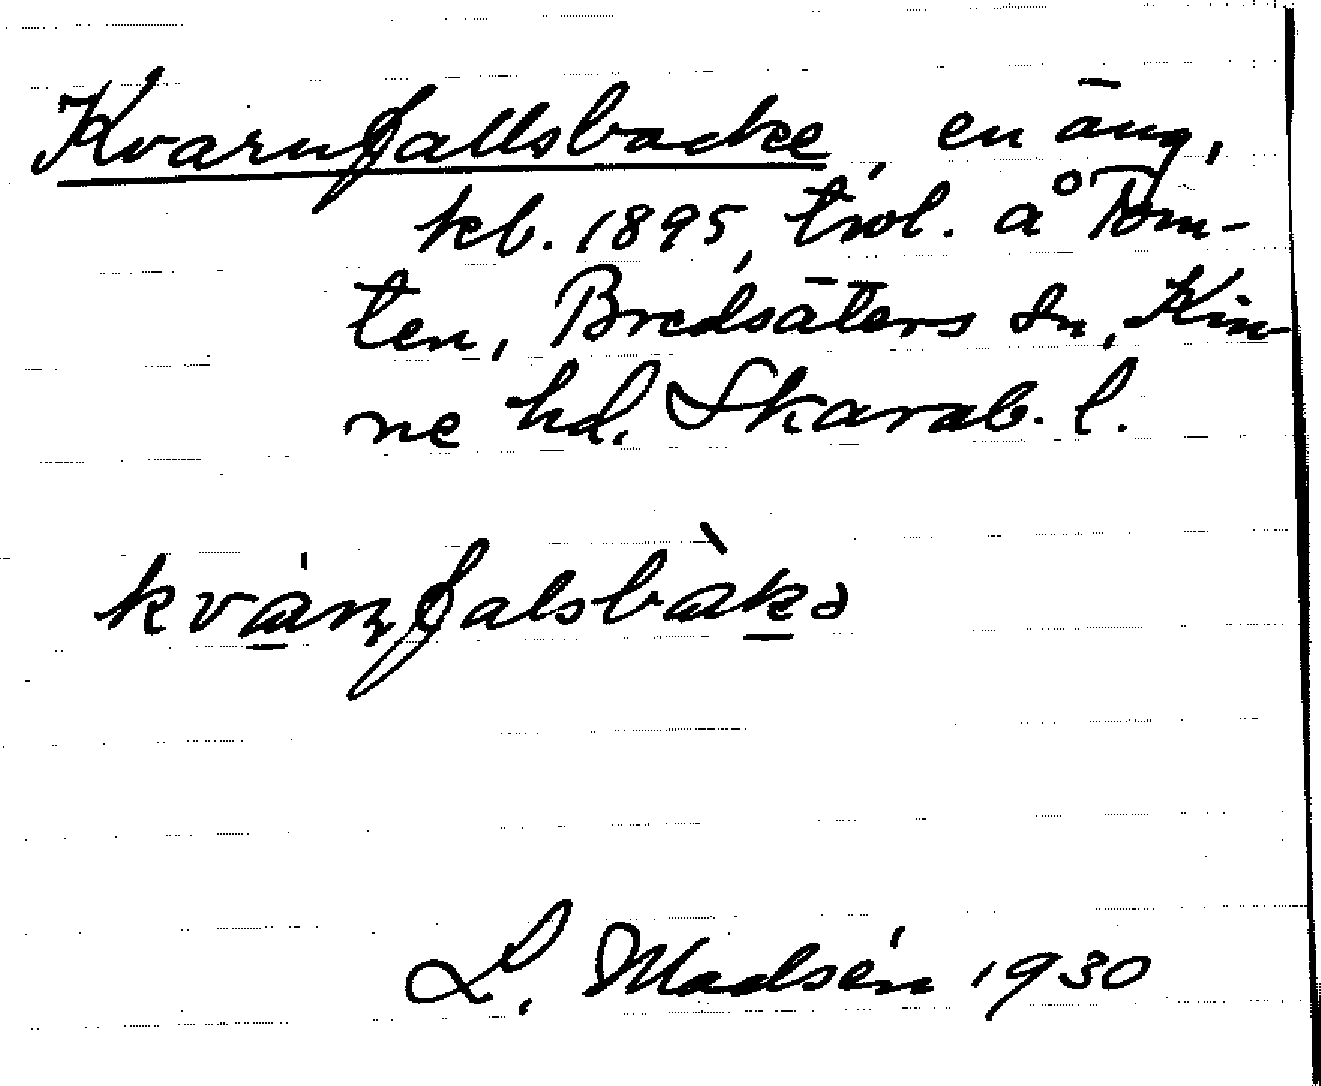 Kvarnfallsbacke, en äng,
kb. 1895, trol. å Tom-
ten, Bredsäters sn, Kin-
ne hd. Skarab. l.
kvánfalsbàkə
L. Madsén 1930